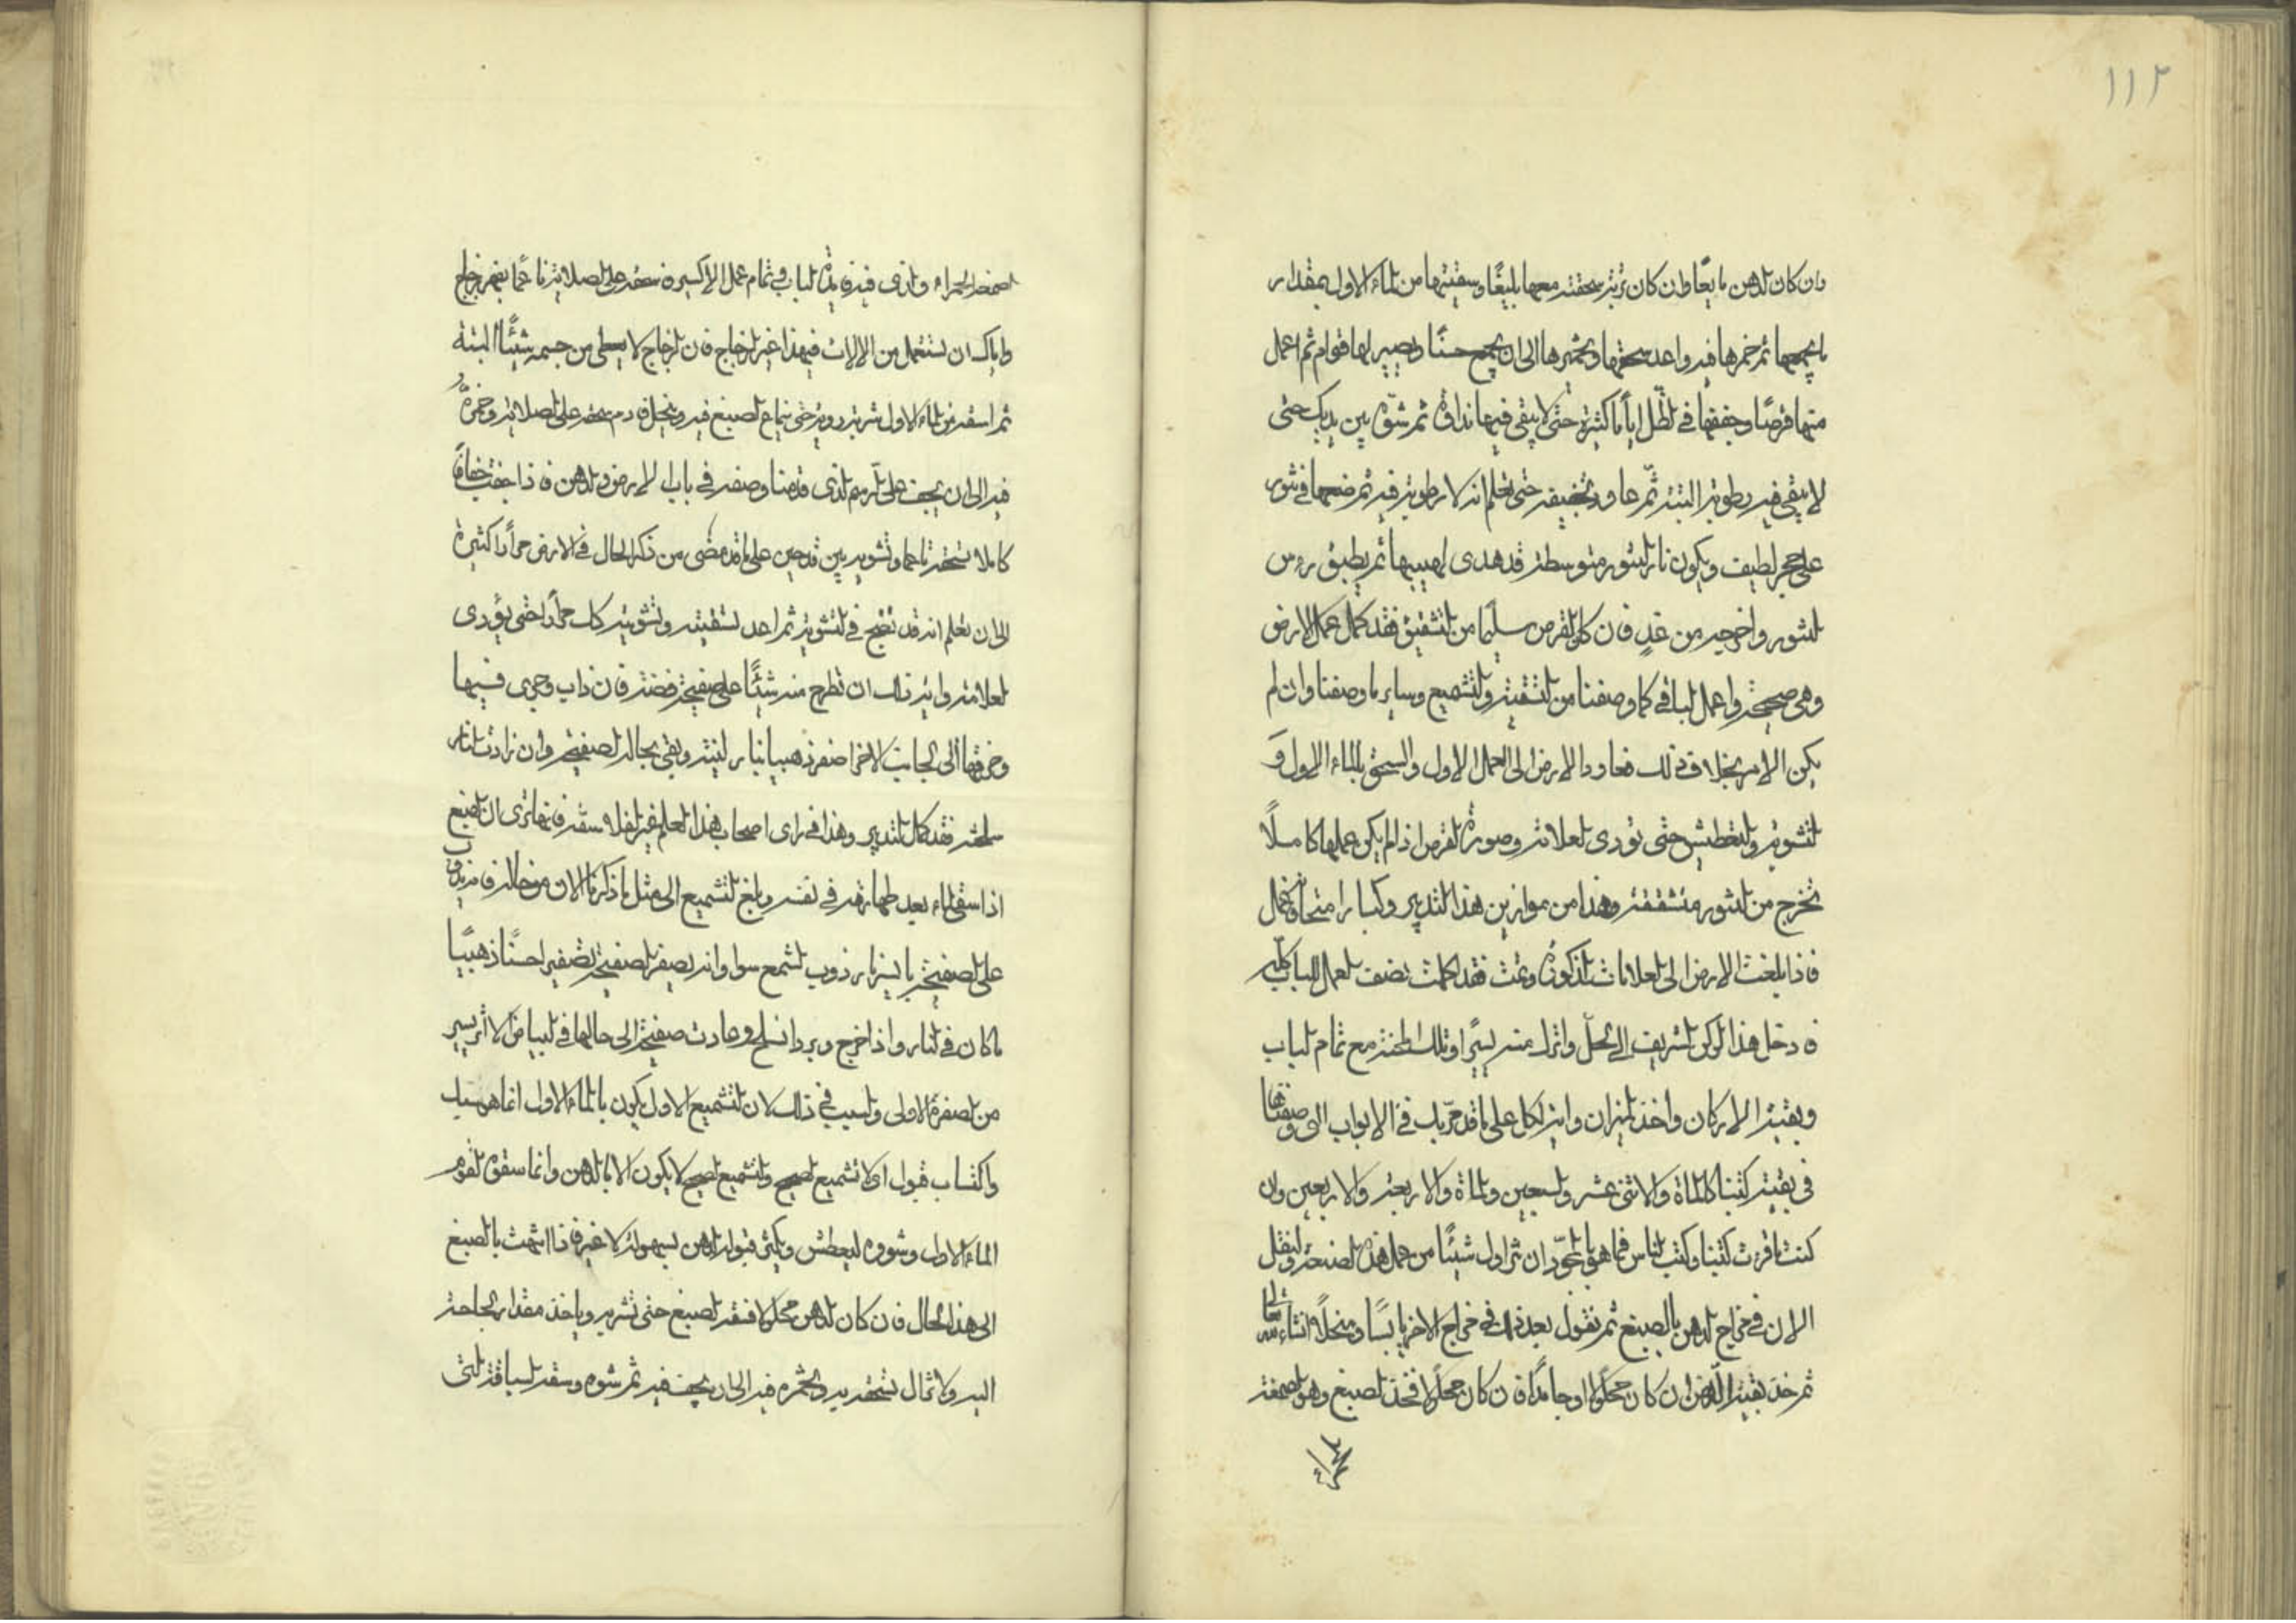 ١١٢
وان كان الدهن مايعًا وان كان تربة سحقته معها بليغًا وسقيتها من الماء الاول بمقدار
ما يجمعها ثم خمرها فيه واعد سحقها وتخميرها الى ان يجمع حسنًا ويصير لها قوام ثم اعمل
منها قرصًا وجففها في الظل اياما كثيرة حتى لا يبقى فيها نداوة ثم شوّه بين يديك حتى
لا يبقى فيه رطوبة البتة ثمّ عاود تجفيفه حتى تعلم انه لا رطوبة فيه ثم ضعها في تنور
على حجر لطيف ويكون نار التنور متوسطة قد هدى لهيبها ثم يطبق رءس
التنور واخرجه من غدٍ فان كان القرص سليمًا من التشقيق فقد كمل عمل الارض
وهى صحيحة واعمل الباقي كما وصفنا من التسقية والتشميع وساير ما وصفنا وان لم
يكن الامر بخلاف ذلك فعاود الارض الى العمل الاول والسحق بالماء الاول وَ
التشوية والتعطيش حتى تؤدى العلامة وصورة القرص اذا لم يكن عملها كاملًا
تخرج من التنور متشققة وهذا من موازين هذا التدبير وكبار امتحان
فاذا بلغت الارض الى العلامات المذكورة وتمت فقد كملت نصف العمل الباب كلّه
فادخل هذا الركن الشريف الى الحلّ واترك منه يسيرًا وتلك الطخنة مع تمام الباب
وبقية الاركان واخذ الميزان وامزج الكل على ما قد مرّ بك في الابواب التي وصفناها
في بقية كتبنا كالماة والاثنى عشر والسبعين والماة والاربعة والاربعين وان
كنت ما قرت كتبنا وكتب الناس فما هو بالجيّد ان تزاول شيئًا من عمل هذه الصنعة ولنقل
الان في خراج الدهن بالصبغ ثم نقول بعد ذلك في خراج الاخر يابسًا ومنحلًا انشاء الله تعالى
ثم خذ بقية الدهن ان كان محلولا او جامدًا فان كان محلولا فخذ الصبغ وهو الصمغة
الصمغة الحمراء والذى فيه فايدة الباب وتمام عمل الاكسير فاسحقه على الصلاية ناعمًا بفهر زجاج
واياك ان تستعمل من الالات في هذا غير الزجاج فان الزجاج لا يعطى من جسمه شيئًا البتة
ثم اسقه من الماء الاول شربة روية حتى يماع الصبغ فيه وينحل فادم سحقه على الصلاية وخمّره
فيه الى ان يجف على الرسم الذى قدمنا وصفه في باب الارض والدهن فاذا جفت جفافًا
كاملا سحقته ناعما وتشويه بين قدحين على ما قد مضى من ذكر الحال في الارض مرارًا كثيرة
الى ان تعلم انه قد نضج في التشوية ثم اعد تسقيته وتشويته كذلك مرارًا حتى يؤدى
العلامة واية ذلك ان تطرح منه شيئًا على صفيحة فضة فان ذاب وجرى فيها
وخرقها الى الجانب الاخر اصفر ذهبيا بنار لينة وبقى بحاله الصفيحة وان زادت النار
سلخته فقد كمل التدبير وهذا في راى اصحاب هذا العلم غير الفلاسفة فانها ترى ان الصبغ
اذا سقى الماء بعد طهارته في نفسه وبلغ التشميع الى مثل ما ذكرنا الان من حاله فانه يذوب
على الصفيحة بايسر نار ذوب الشمع سوا وانه يصفر الصفيحة تصفيرا حسنًا ذهبيًا
ما كان في النار واذا خرج وبرد انسلخ وعادت صفيحة الى حالها في البياض الا اثر يسير
من الصفرة الاولى والسبب في ذلك لان التشميع الاول يكون بالماء الاول انما هو سبك
واكتساب قبول اى لا تشميع صحيح والتشميع الصحيح لا يكون الا بالدهن وانما سقوه القوم
الماء الاول وشووه ليعطش ويكثر قبوله الدهن بسهولة لا غير فاذا انتهت بالصبغ
الى هذا الحال فان كان الدهن محلولا فسقه الصبغ حتى تشربه وياخذ مقدار الحاجة
اليه ولا تمال سحقه به وتخمره فيه الى ان يجف فيه ثم شوه وسقه السياقة التى